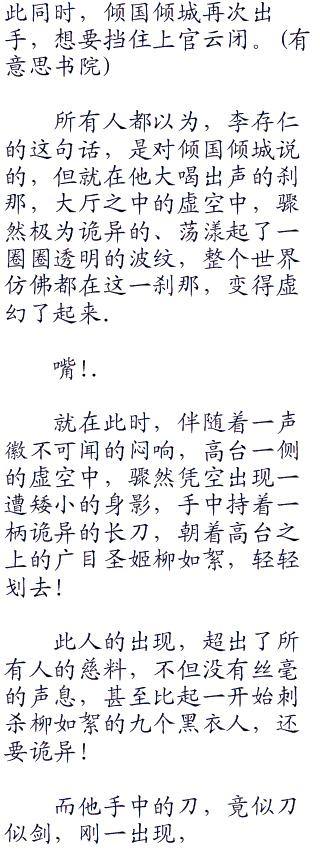 此同时，倾国倾城再次出
手，想要挡住上官云闭。(有
意思书院)
所有人都以为，李存仁
的这句话，是对倾国倾城说
的，但就在他大喝出声的刹
那，大厅之中的虚空中，骤
然极为诡异的、荡漾起了一
圈圈透明的波纹，整个世界
仿佛都在这一刹那，变得虚
幻了起来.
嘴!.
就在此时，伴随着一声
徽不可闻的闷响，高台一侧
的虚空中，骤然凭空出现一
遭矮小的身影，手中持着一
柄诡异的长刀，朝着高台之
上的广目圣姬柳如絮，轻轻
划去!
此人的出现，超出了所
有人的慈料，不但没有丝毫
的声息，甚至比起一开始刺
杀柳如絮的九个黑衣人，还
要诡异!
而他手中的刀，竟似刀
似剑，刚一出现，